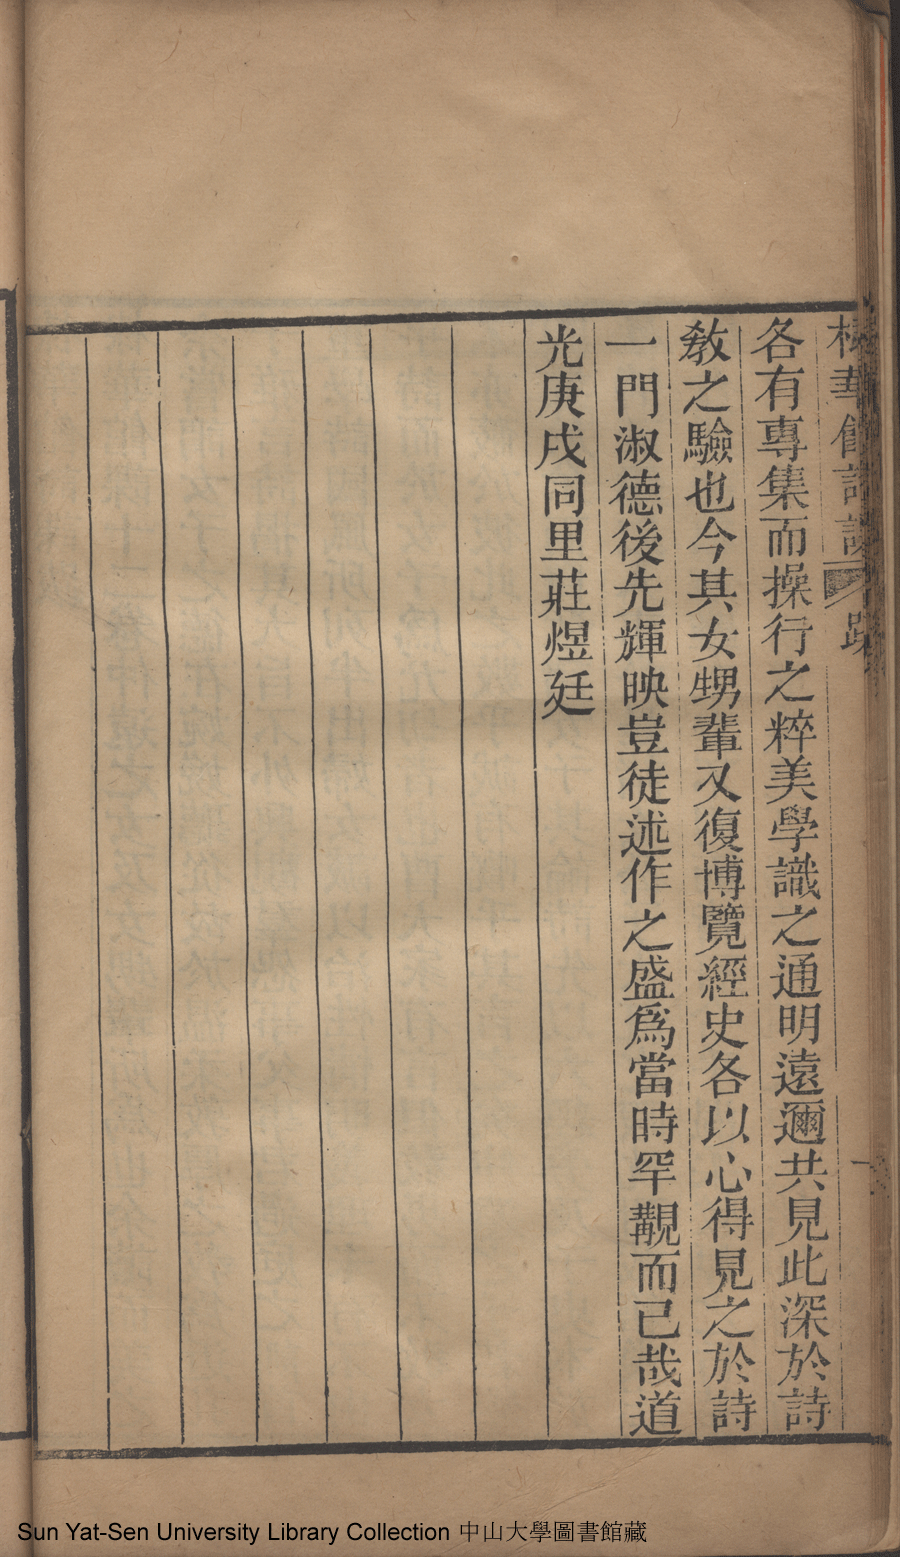 棣華館詩課 跋
各有專集而操行之粹美學識之通明遠邇共見此深於詩
敎之驗也今其女甥輩又復博覽經史各以心得見之於詩
一門淑德後先輝映豈徒述作之盛爲當時罕覯而已哉道
光庚戌同里莊煜廷
Sun Yat-Sen University Library Collection 中山大學圖書館藏